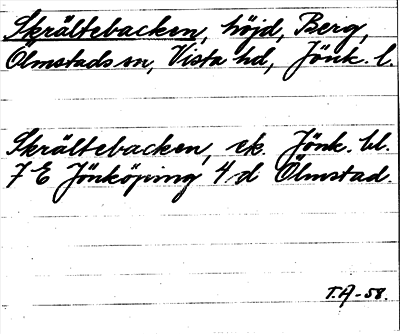 Skrältebacken, höjd, Berg,
Ölmstads sn, Vista hd, Jönk. l.
Skrältebacken, ek. Jönk. bl.
7 E Jönköping 4 d Ölmstad.
T.A-58.